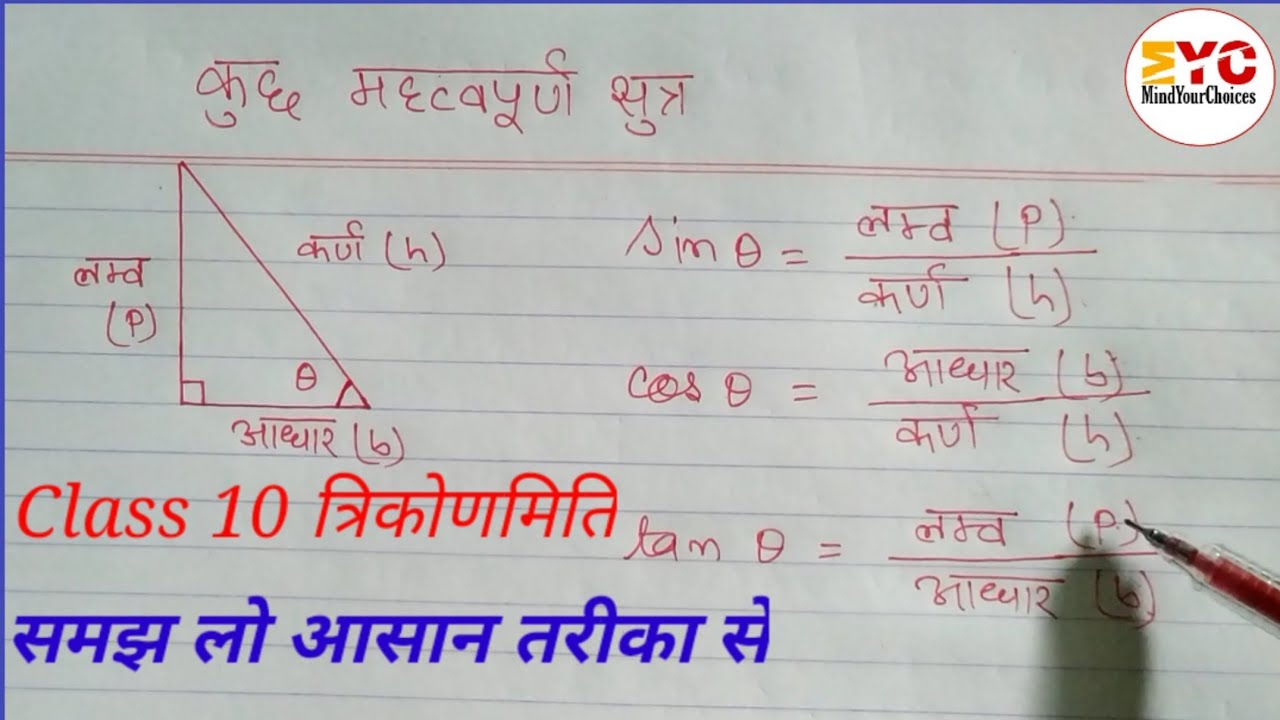 MYC
MindYourChoices
कुछ महत्वपूर्ण सुत्र
लम्ब
(P)
कर्ण (h)
θ
आधार (b)
sin θ = लम्ब (P) / कर्ण (h)
cos θ = आधार (b) / कर्ण (h)
tan θ = लम्ब (P) / आधार (b)
Class 10 त्रिकोणमिति
समझ लो आसान तरीका से